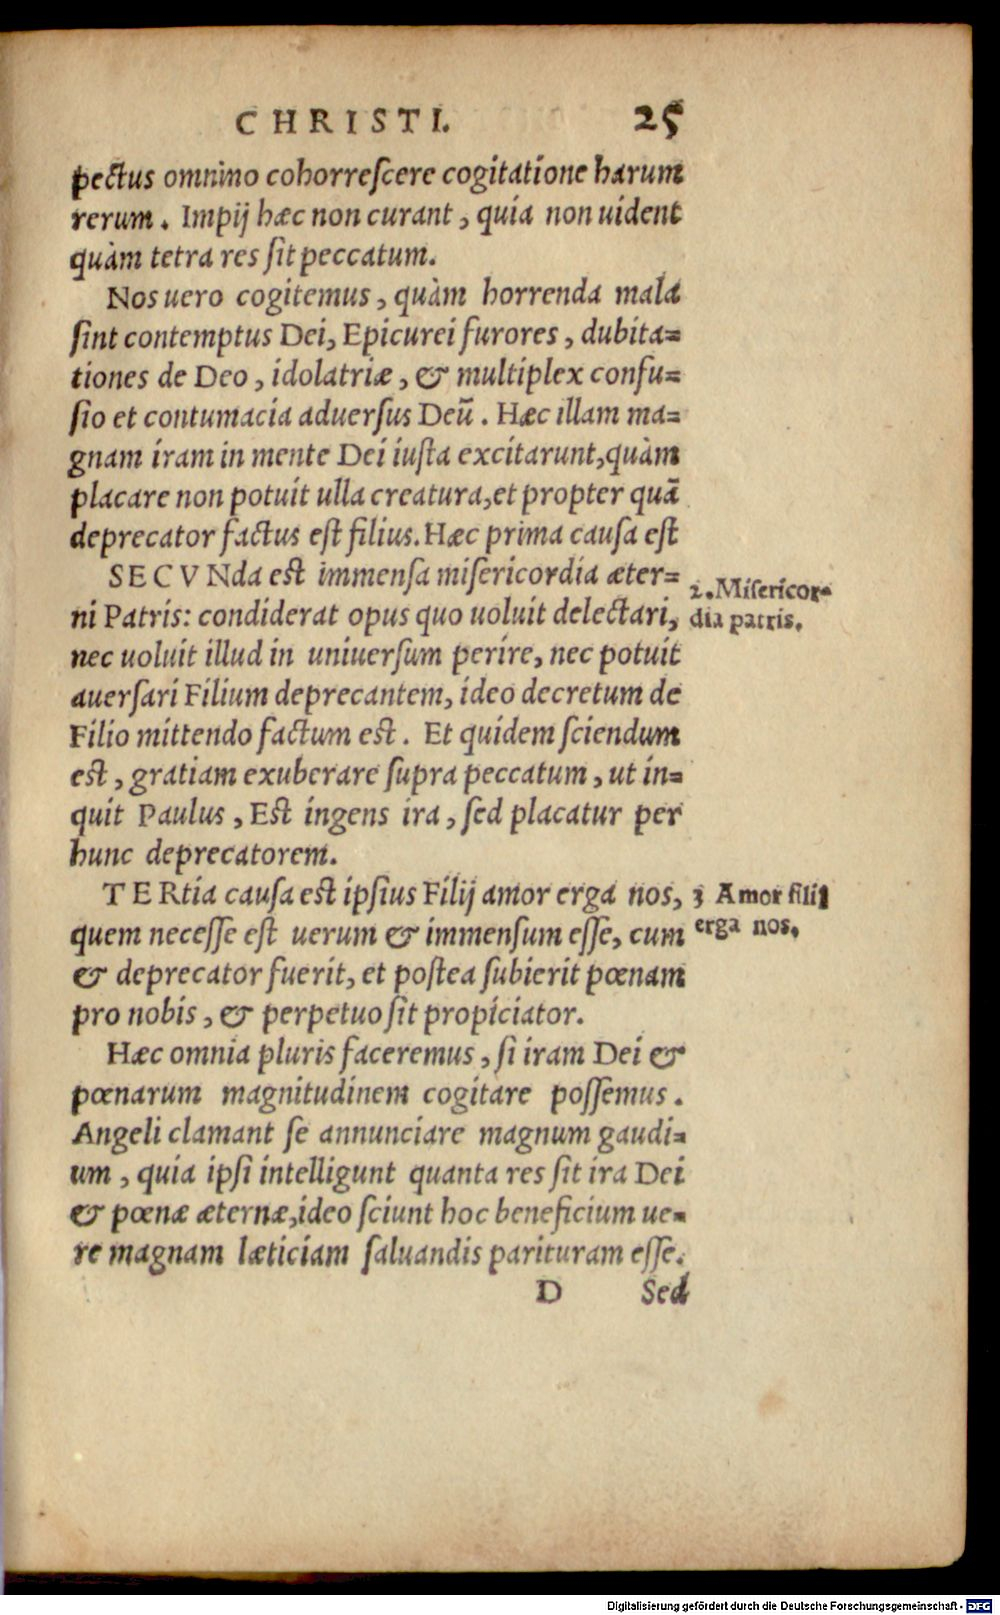 CHRISTI. 25
pectus omnino cohorrescere cogitatione harum
rerum. Impij hæc non curant, quia non uident
quàm tetra res sit peccatum.
Nos uero cogitemus, quàm horrenda mala
sint contemptus Dei, Epicurei furores, dubita=
tiones de Deo, idolatriæ, & multiplex confu=
sio et contumacia aduersus Deū. Hæc illam ma=
gnam iram in mente Dei iusta excitarunt, quàm
placare non potuit ulla creatura, et propter quā
deprecator factus est filius. Hæc prima causa est
SECVNda est immensa misericordia æter=
ni Patris: condiderat opus quo uoluit delectari,
nec uoluit illud in uniuersum perire, nec potuit
auersari Filium deprecantem, ideo decretum de
Filio mittendo factum est. Et quidem sciendum
est, gratiam exuberare supra peccatum, ut in=
quit Paulus, Est ingens ira, sed placatur per
hunc deprecatorem.
2. Misericor=
dia patris.
TERtia causa est ipsius Filij amor erga nos,
quem necesse est uerum & immensum esse, cum
& deprecator fuerit, et postea subierit pœnam
pro nobis, & perpetuo sit propiciator.
3 Amor filij
erga nos.
Hæc omnia pluris faceremus, si iram Dei &
pœnarum magnitudinem cogitare possemus.
Angeli clamant se annunciare magnum gaudi=
um, quia ipsi intelligunt quanta res sit ira Dei
& pœnæ æternæ, ideo sciunt hoc beneficium ue=
re magnam læticiam saluandis parituram esse.
D Sed
Digitalisierung gefördert durch die Deutsche Forschungsgemeinschaft - DFG